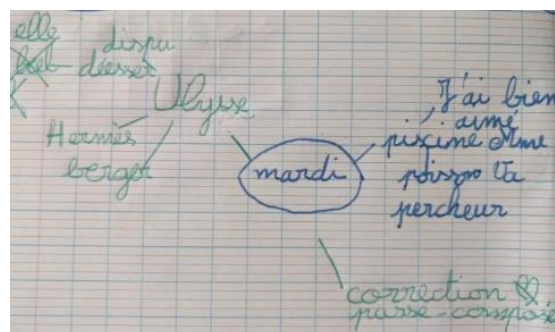 elle
dispu
déesses
Ulysse
Hermès
berger
mardi
J'ai bien
aimé
piscine Mme
poisson Va
percheur
correction
passe-composé